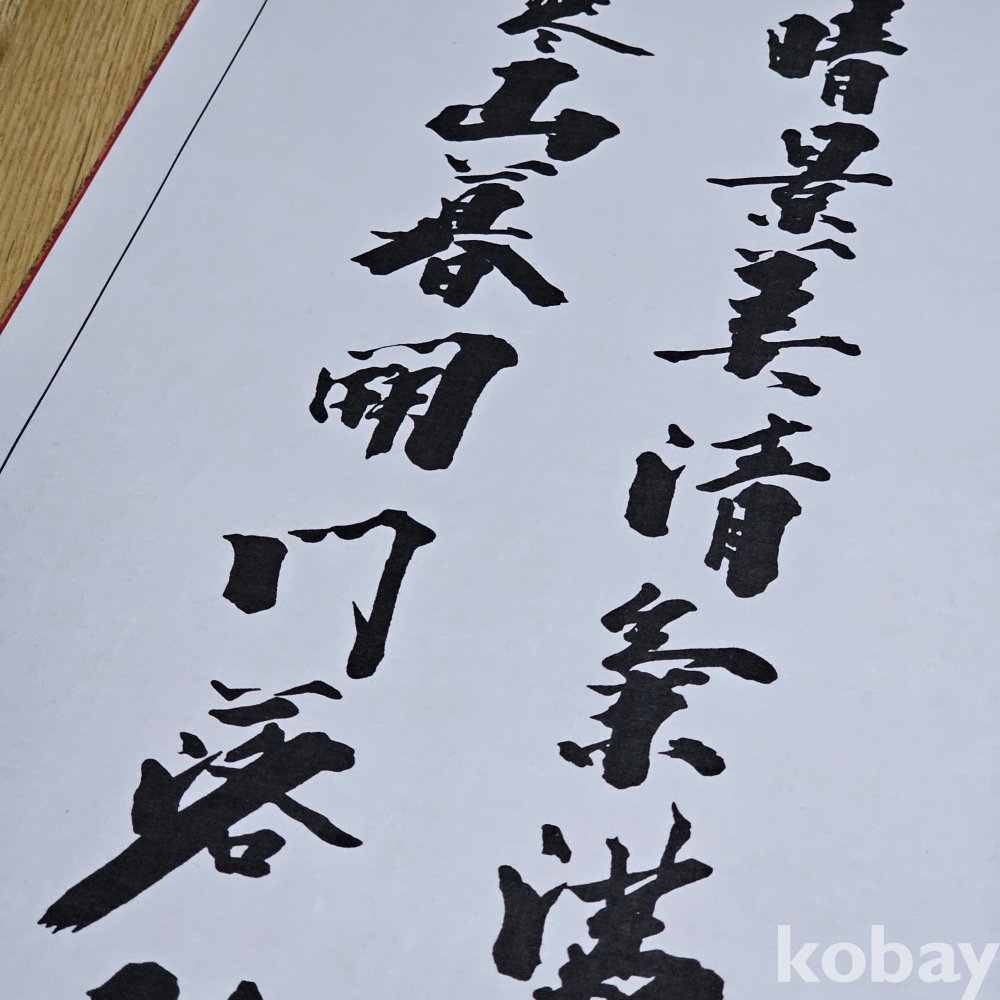 晴景美清氣滿
寒山暮開門落
kobay